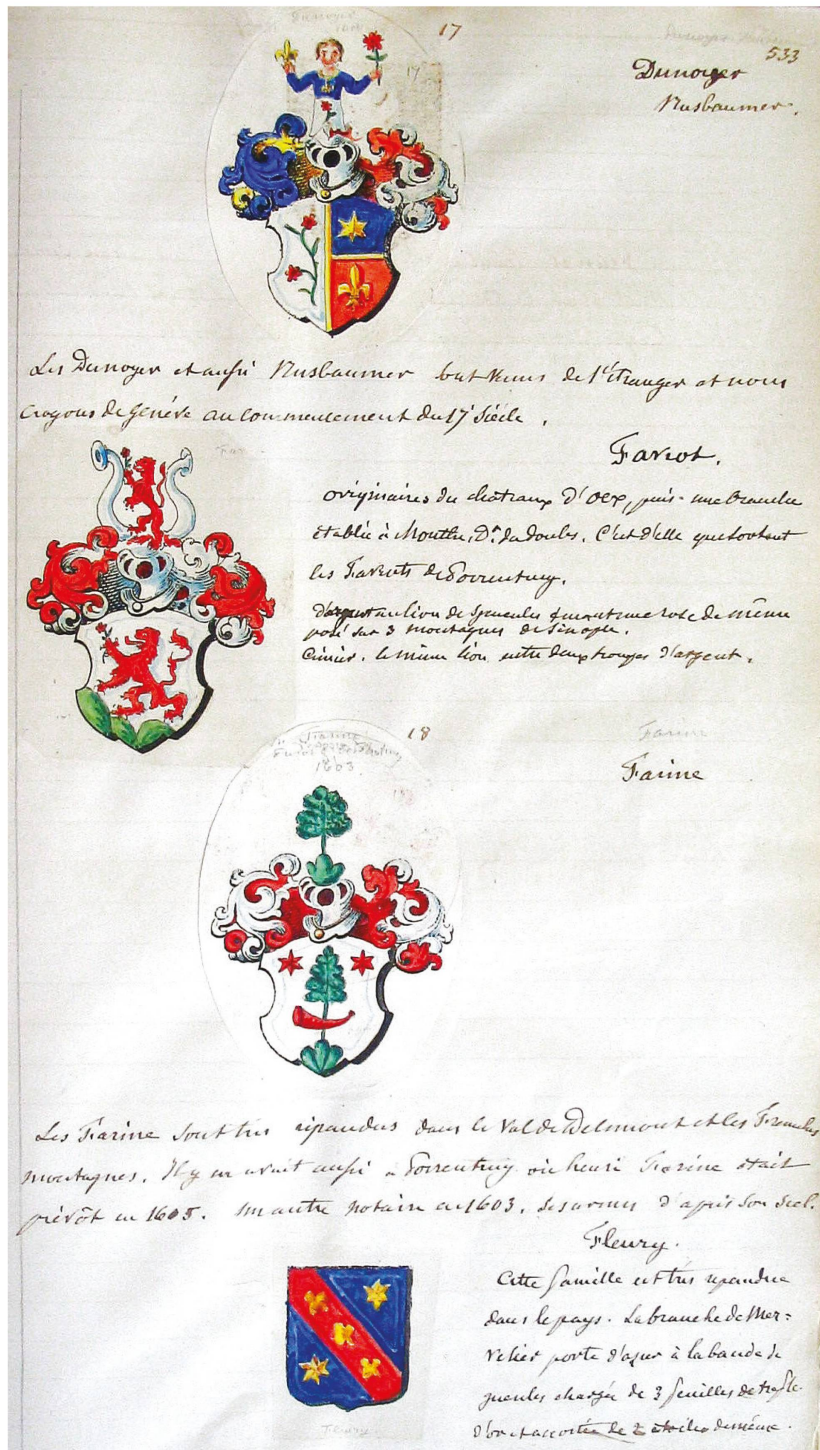 Dunoyer
17
533
Dunoyer
Nusbaumer.
17
Les Dunoyer et aussi Nusbaumer sont venus de l'étranger et nous
croyons de Genève au commencement du 17e siècle.
Far
Farcot.
originaires du chateaux d'Oex, puis une branche
établie à Mouthe, Dt. du Doubs. C'est d'elle que sortent
les Farcots de Porrentruy.
d'argent au lion de gueules tenant une rose de même
posé sur 3 montagnes de sinople.
Cimier. le même lion entre deux trompes d'argent.
18
Farine
1603
18
Farine
Farine
Les Farine sont très répandus dans le Val de Delémont et les Franches
montagnes. Il y en avait aussi à Porrentruy où henri Farine était
prévôt en 1605. un autre notaire en 1603. ses armes d'après son scel.
Fleury.
Cette famille est très répandue
dans le pays. La branche de Mer=
velier porte d'azur à la bande de
gueules chargée de 3 feuilles de trefle
d'or et accostée de 2 étoiles de même.
Fleury